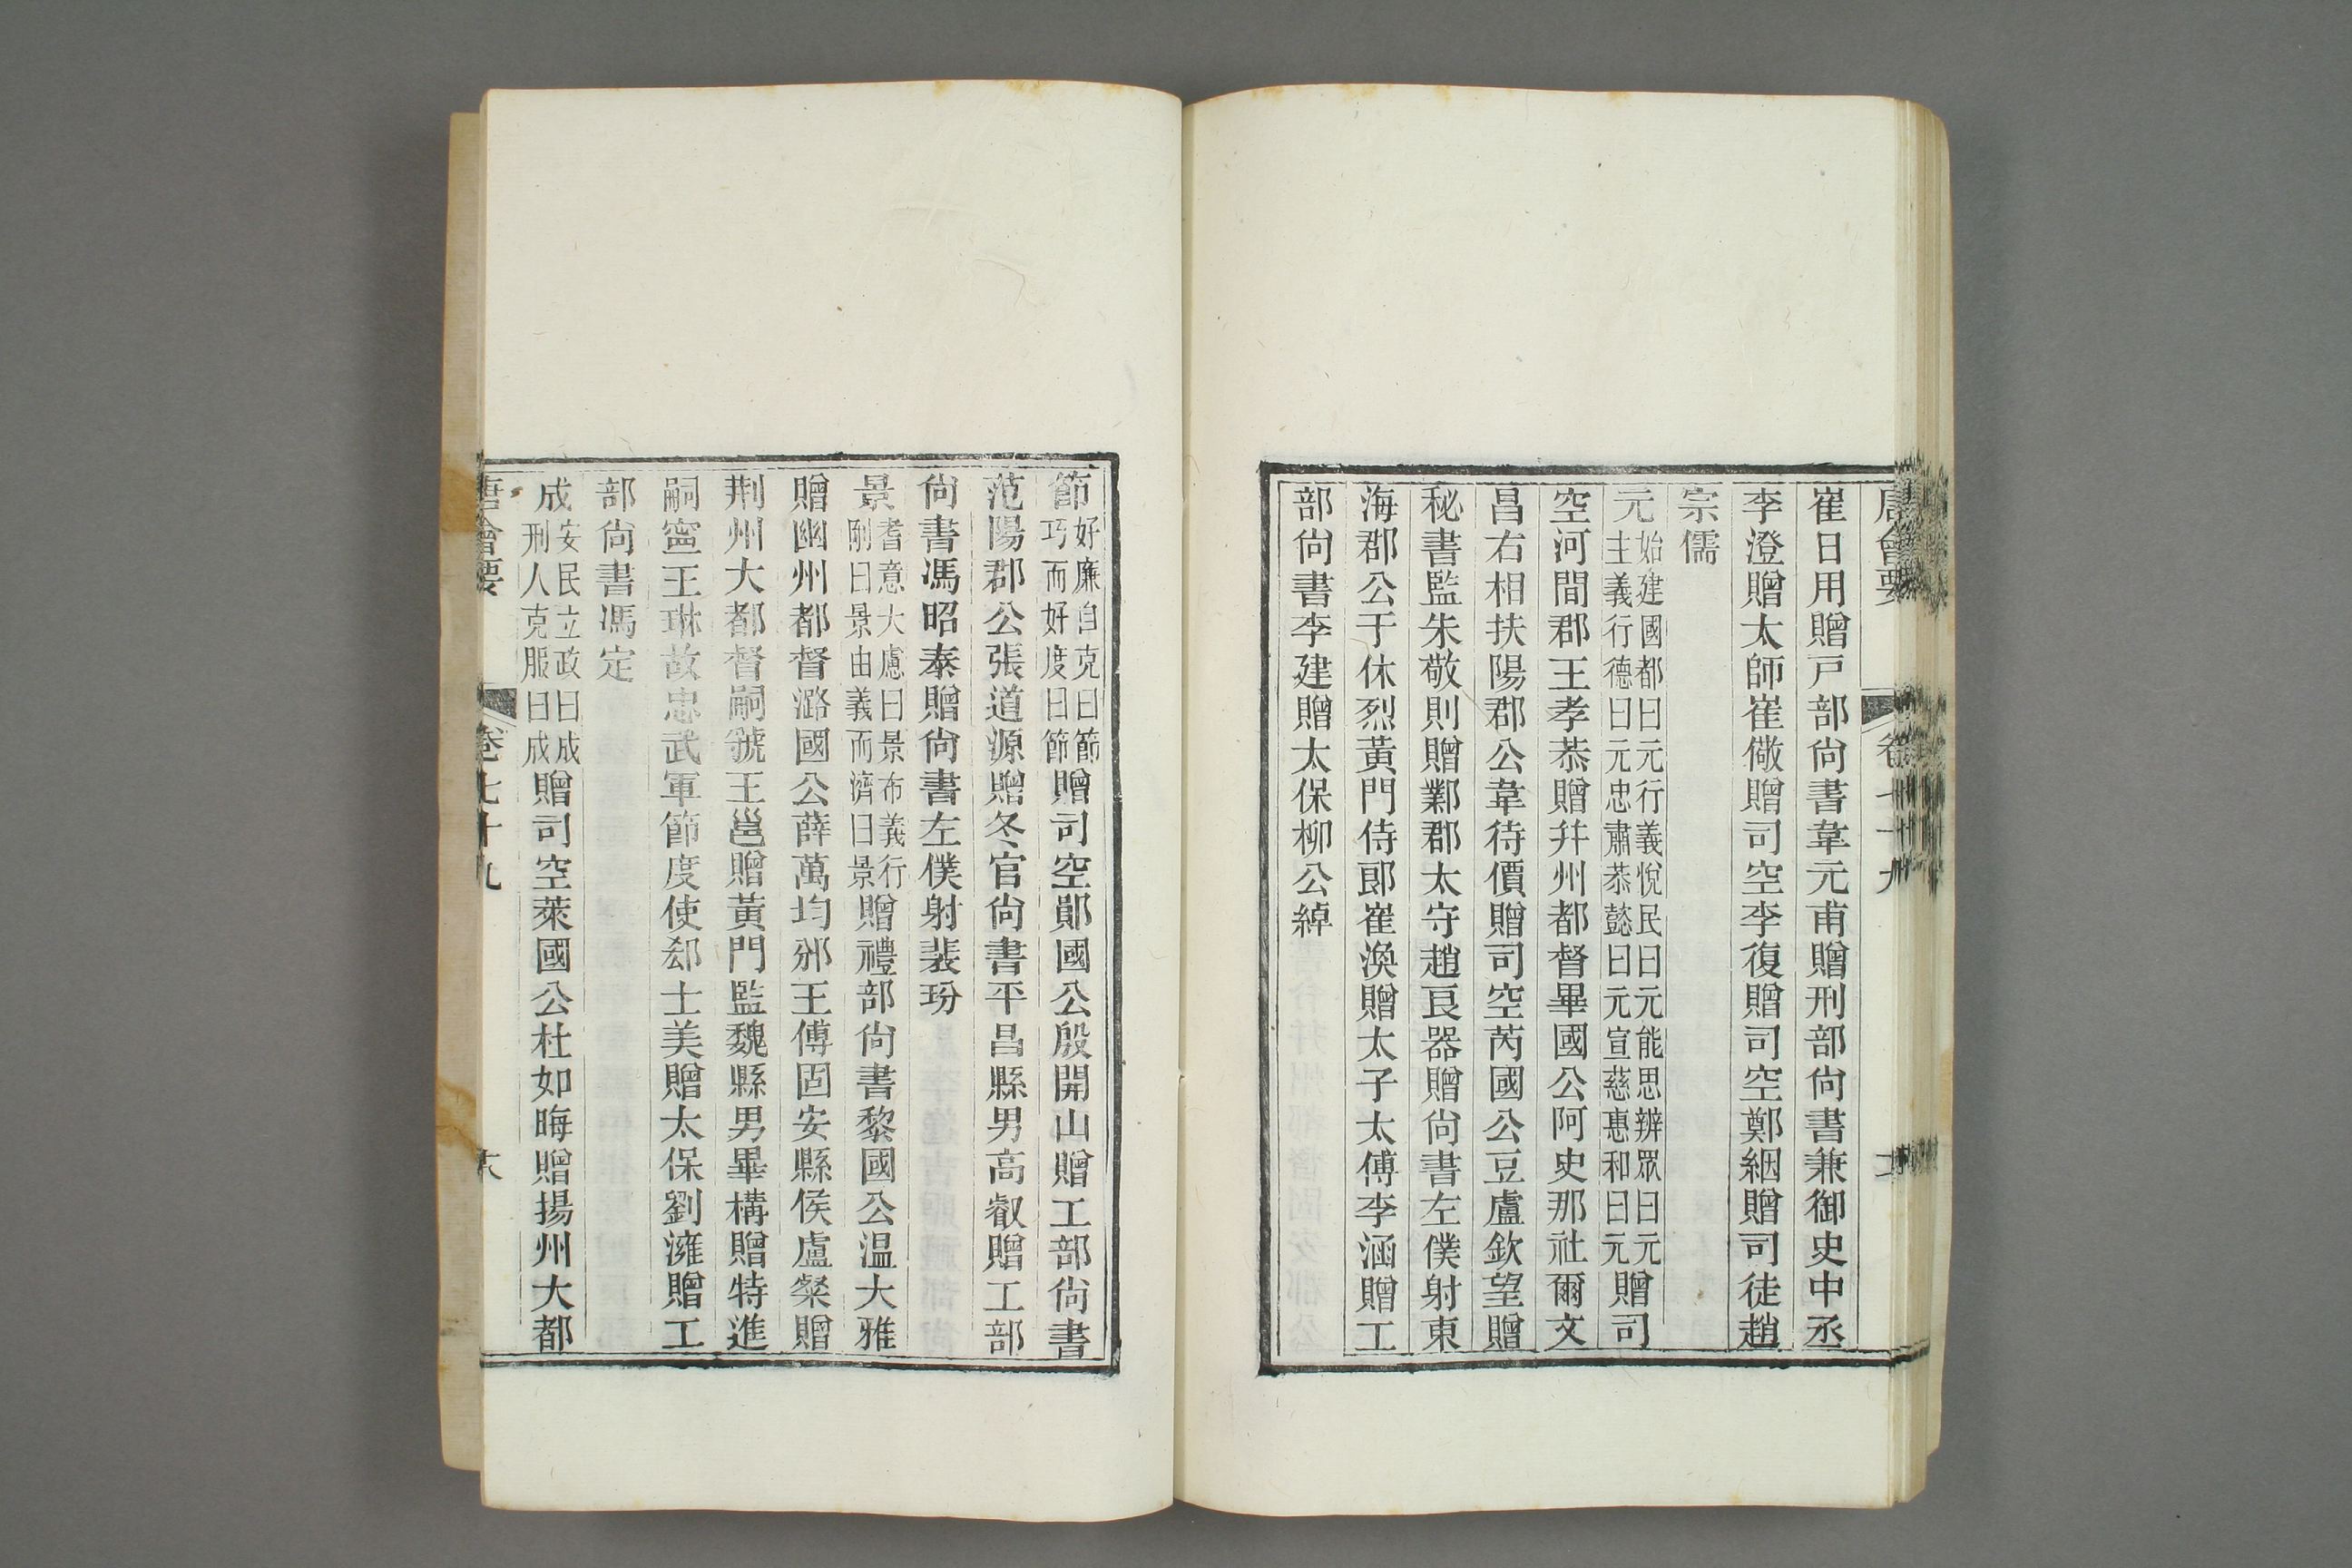 崔日用贈戸部尙書韋元甫贈刑部尙書兼御史中丞
李澄贈太師崔儆贈司空李復贈司空鄭絪贈司徒趙
宗儒
元始建國都曰元行義悅民曰元能思辨眾曰元主義行德曰元忠肅恭懿曰元宣慈惠和曰元贈司
空河間郡王孝恭贈幷州都督畢國公阿史那社爾文
昌右相扶陽郡公韋待價贈司空芮國公豆盧欽望贈
秘書監朱敬則贈鄴郡太守趙良器贈尙書左僕射東
海郡公于休烈黃門侍郞崔渙贈太子太傅李涵贈工
部尙書李建贈太保柳公綽
節好廉自克曰節巧而好度曰節贈司空鄖國公殷開山贈工部尙書
范陽郡公張道源贈冬官尙書平昌縣男高叡贈工部
尙書馮昭泰贈尙書左僕射裴玢
景耆意大慮曰景布義行剛曰景由義而濟曰景贈禮部尙書黎國公温大雅
贈幽州都督潞國公薛萬均邠王傅固安縣侯盧粲贈
荆州大都督嗣虢王邕贈黃門監魏縣男畢構贈特進
嗣寧王琳故忠武軍節度使郄士美贈太保劉澭贈工
部尙書馮定
成安民立政曰成刑人克服曰成贈司空萊國公杜如晦贈揚州大都
唐會要 卷七十九